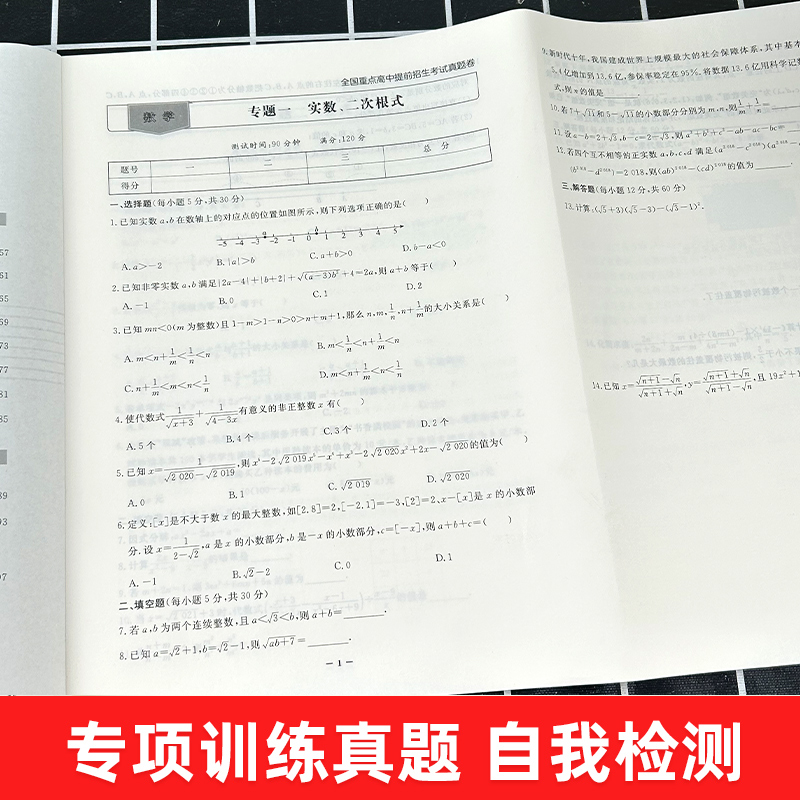 全国重点高中提前招生考试真题卷
数学
专题一 实数、二次根式
测试时间:90分钟 满分:120分
题号 一 二 三 总分
得分
一、选择题(每小题5分,共30分)
1.已知实数a,b在数轴上的对应点的位置如图所示,则下列选项正确的是( )
-5 -4 -3 a -2 -1 0 b 1 2 3 4 5
A.a>-2 B.|a|>b C.a+b>0 D.b-a<0
2.已知非零实数a,b满足|2a-4|+|b+2|+√((a-3)b²)+4=2a,则a+b等于( )
A.-1 B.0 C.1 D.2
3.已知mn<0(m为整数)且1-m>1-n>0>n+m+1,那么n,m,1/n,n+1/m的大小关系是( )
A.m<n+1/m<1/n<n B.m<1/n<n+1/m<n
C.n+1/m<m<n<1/n D.m<n+1/m<n<1/n
4.使代数式1/√(x+3)+1/√(4-3x)有意义的非正整数x有( )
A.5个 B.4个 C.3个 D.2个
5.已知x=1/(√2 020-√2 019),则x⁶-2√2 019x⁵-x⁴+x³-2√2 020x²+2x-√2 020的值为( )
A.0 B.1 C.√2 019 D.√2 020
6.定义:[x]是不大于数x的最大整数,如[2.8]=2,[-2.1]=-3,[2]=2、x-[x]是x的小数部
分.设x=1/(2-√2),a是x的小数部分,b是-x的小数部分,c=[-x],则a+b+c=( )
A.-1 B.√2-2 C.0 D.1
二、填空题(每小题5分,共30分)
7.若a,b为两个连续整数,且a<√3<b,则a+b=______.
8.已知a=√2+1,b=√2-1,则√(ab+7)=______.
-1-
9.新时代十年,我国建成世界上规模最大的社会保障体系,其中基本
亿增加到13.6亿,参保率稳定在95%.将数据13.6亿用科学记数
式,则n的值是______.
10.若7+√11和5-√11的小数部分分别为m,n,则1/m+1/n=
11.设a-b=2+√3,b-c=2-√3,则a²+b²+c²-ab-ac-bc=
12.若四个互不相等的正实数a,b,c,d满足(a^2 018-c^2 018)(a^2 018
(b^2 018-d^2 018)=2 018,则(ab)^2 018-(cd)^2 018的值为______.
三、解答题(每小题12分,共60分)
13.计算:(√5+3)(√5-3)-(√3-1)².
14.已知x=(√(n+1)-√n)/(√(n+1)+√n),y=(√(n+1)+√n)/(√(n+1)-√n),且19x²+1
57
51
65
59
73
77
81
85
89
93
97
专项训练真题 自我检测